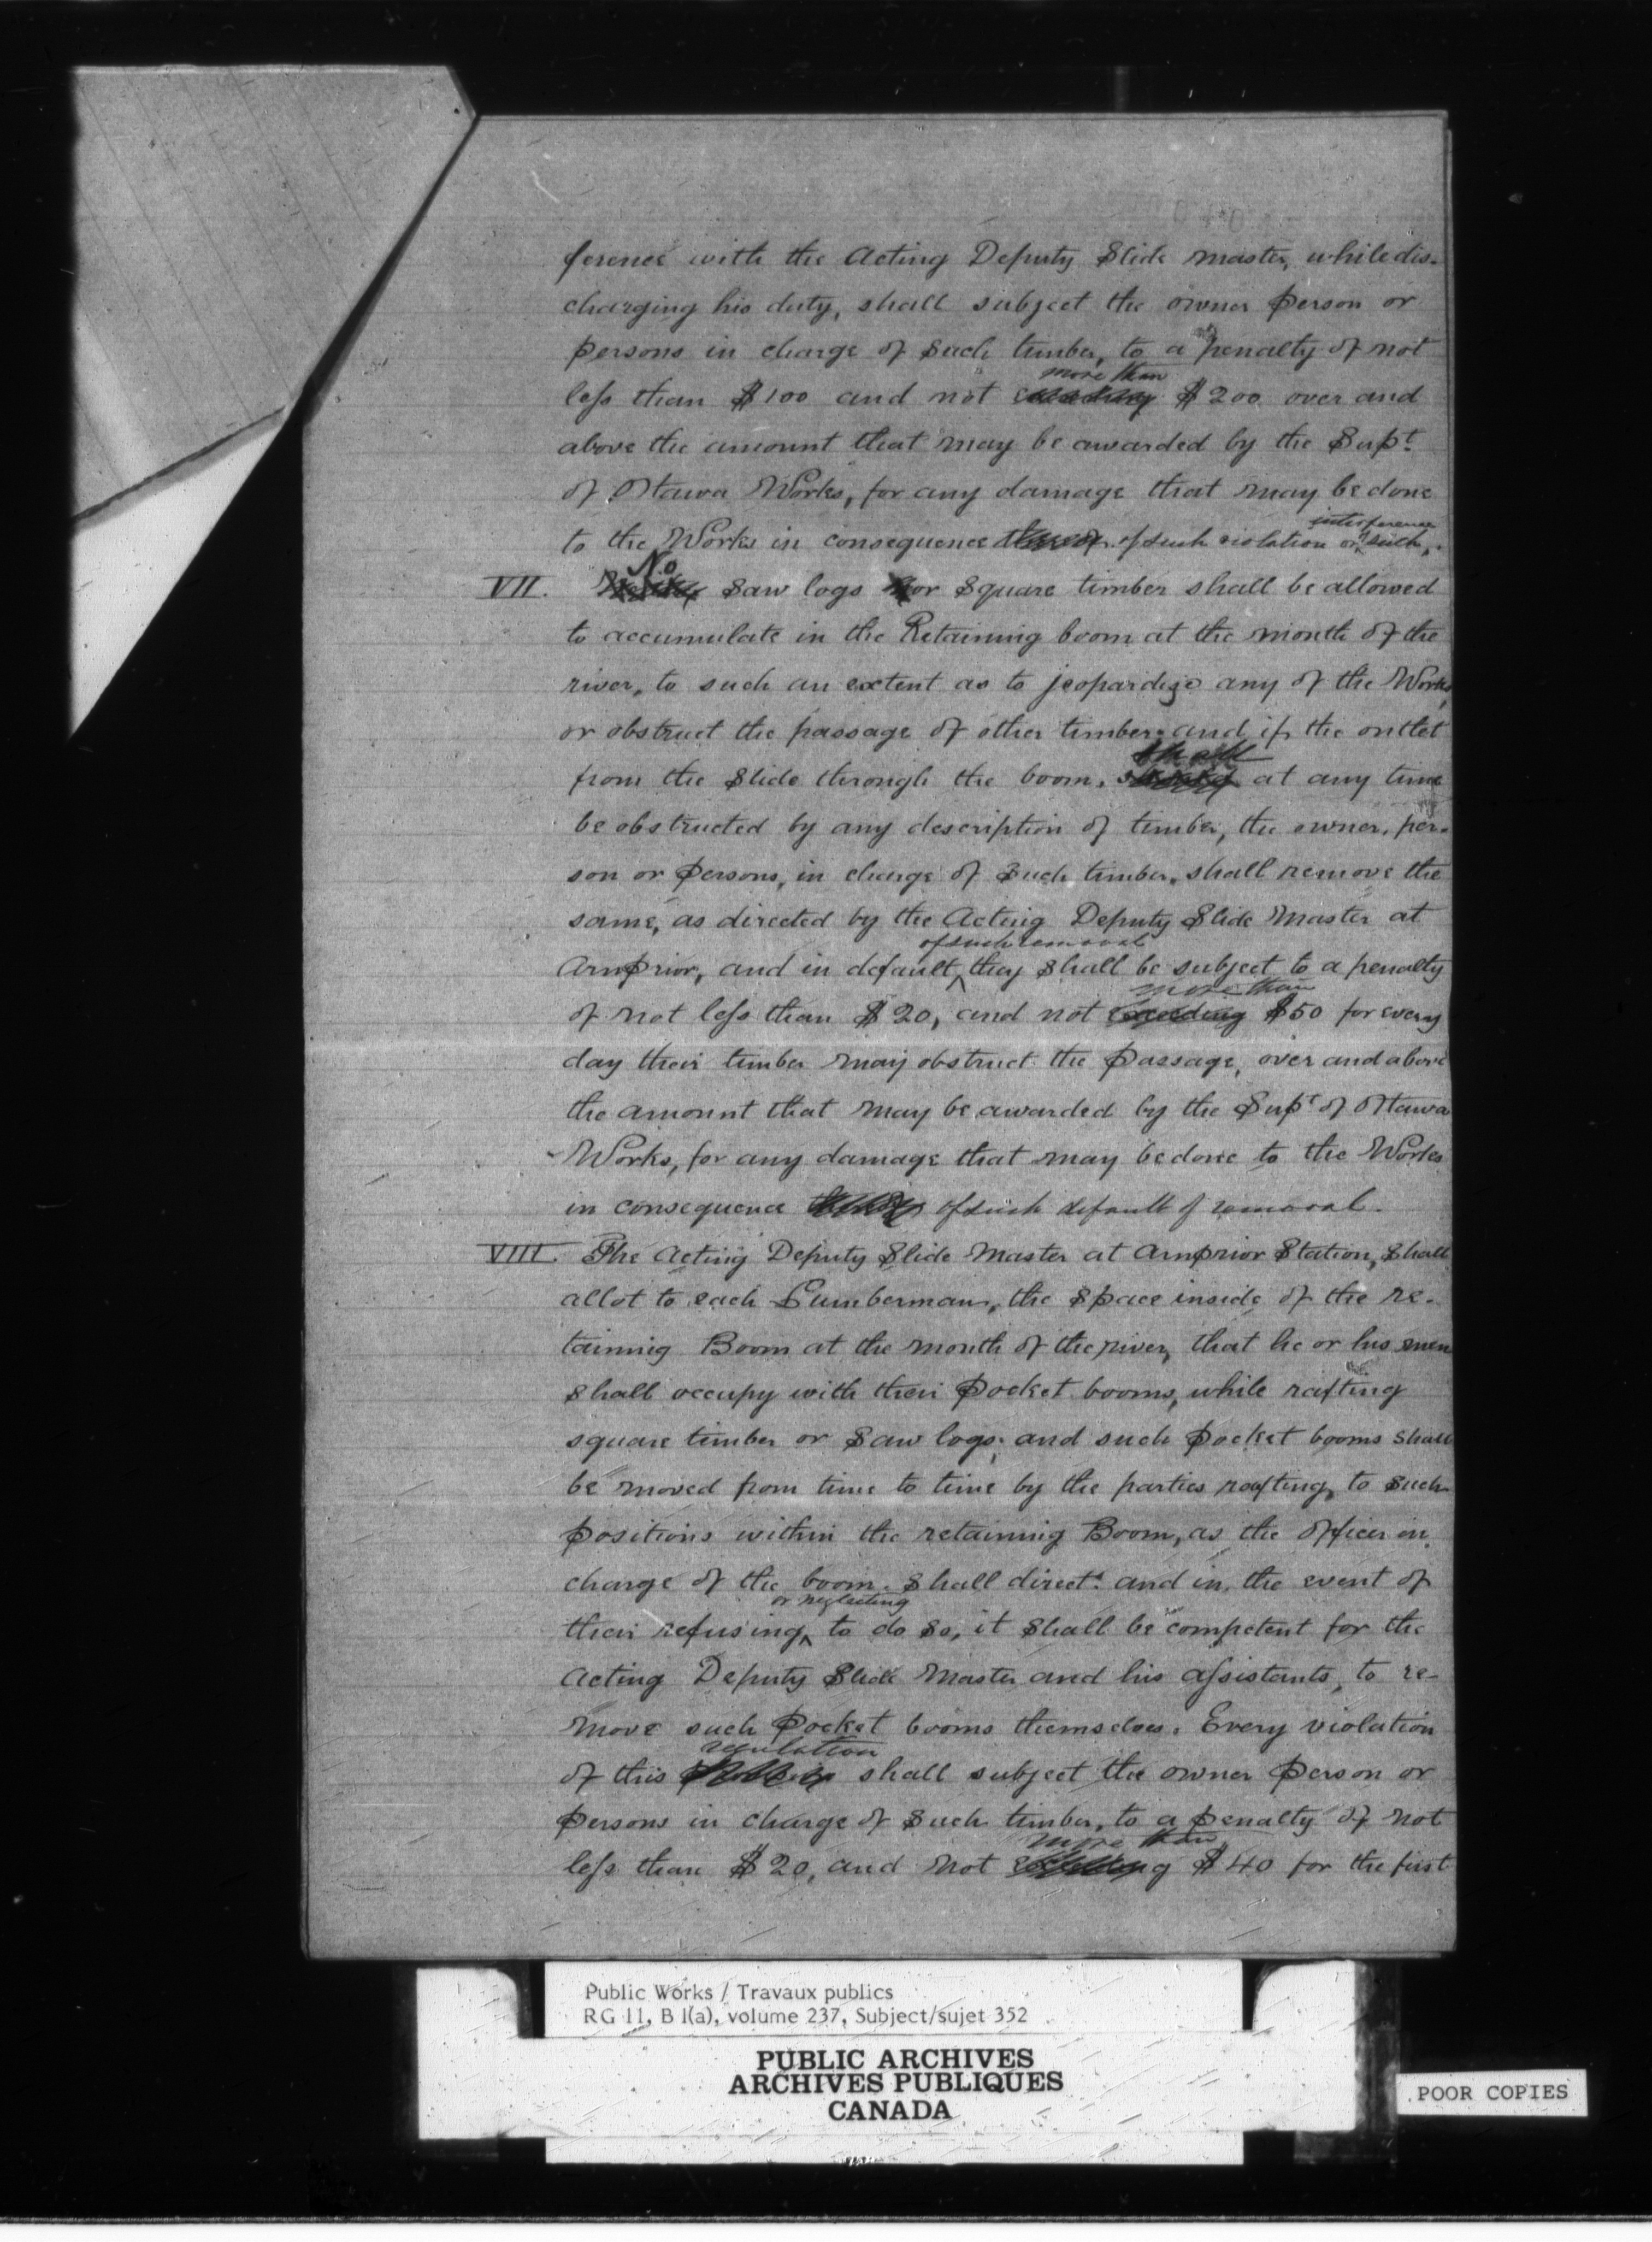 ference with the Acting Deputy Slide Master, while dis-
charging his duty, shall subject the owner person or
persons in charge of such timber, to a penalty of not
more than
less than $100 and not exceeding $200 over and
above the amount that may be awarded by the Supt.
of Ottawa Works, for any damage that may be done
interference
to the Works in consequence thereof of such violation or such.
No
VII. Saw logs nor Square timber shall be allowed
to accumulate in the Retaining boom at the mouth of the
river, to such an extent as to jeopardize any of the Works,
or obstruct the passage of other timber: and if the outlet
shall
from the Slide through the boom, should at any time
be obstructed by any description of timber, the owner, per-
son or persons, in charge of such timber, shall remove the
same, as directed by the Acting Deputy Slide Master at
of such removal
Arnprior, and in default, they shall be subject to a penalty
more than
of not less than $20, and not exceeding $50 for every
day their timber may obstruct the passage, over and above
the amount that may be awarded by the Supt of Ottawa
Works, for any damage that may be done to the Works
in consequence of such default of removal.
VIII. The Acting Deputy Slide Master at Arnprior Station, shall
allot to each Lumberman, the space inside of the re-
taining Boom at the mouth of the river, that he or his men
shall occupy with their Pocket booms, while rafting
square timber or Saw logs; and such Pocket booms shall
be moved from time to time by the parties rafting, to such
positions within the retaining Boom, as the officer in
charge of the boom shall direct: and in the event of
or neglecting
their refusing to do so, it shall be competent for the
Acting Deputy Slide Master and his assistants, to re-
move such Pocket booms themselves. Every violation
regulation
of this shall subject the owner person or
persons in charge of such timber, to a penalty of not
more than
less than $20, and not exceeding $40 for the first
Public Works / Travaux publics
RG 11, B 1(a), volume 237, Subject/sujet 352
PUBLIC ARCHIVES
ARCHIVES PUBLIQUES
CANADA
POOR COPIES